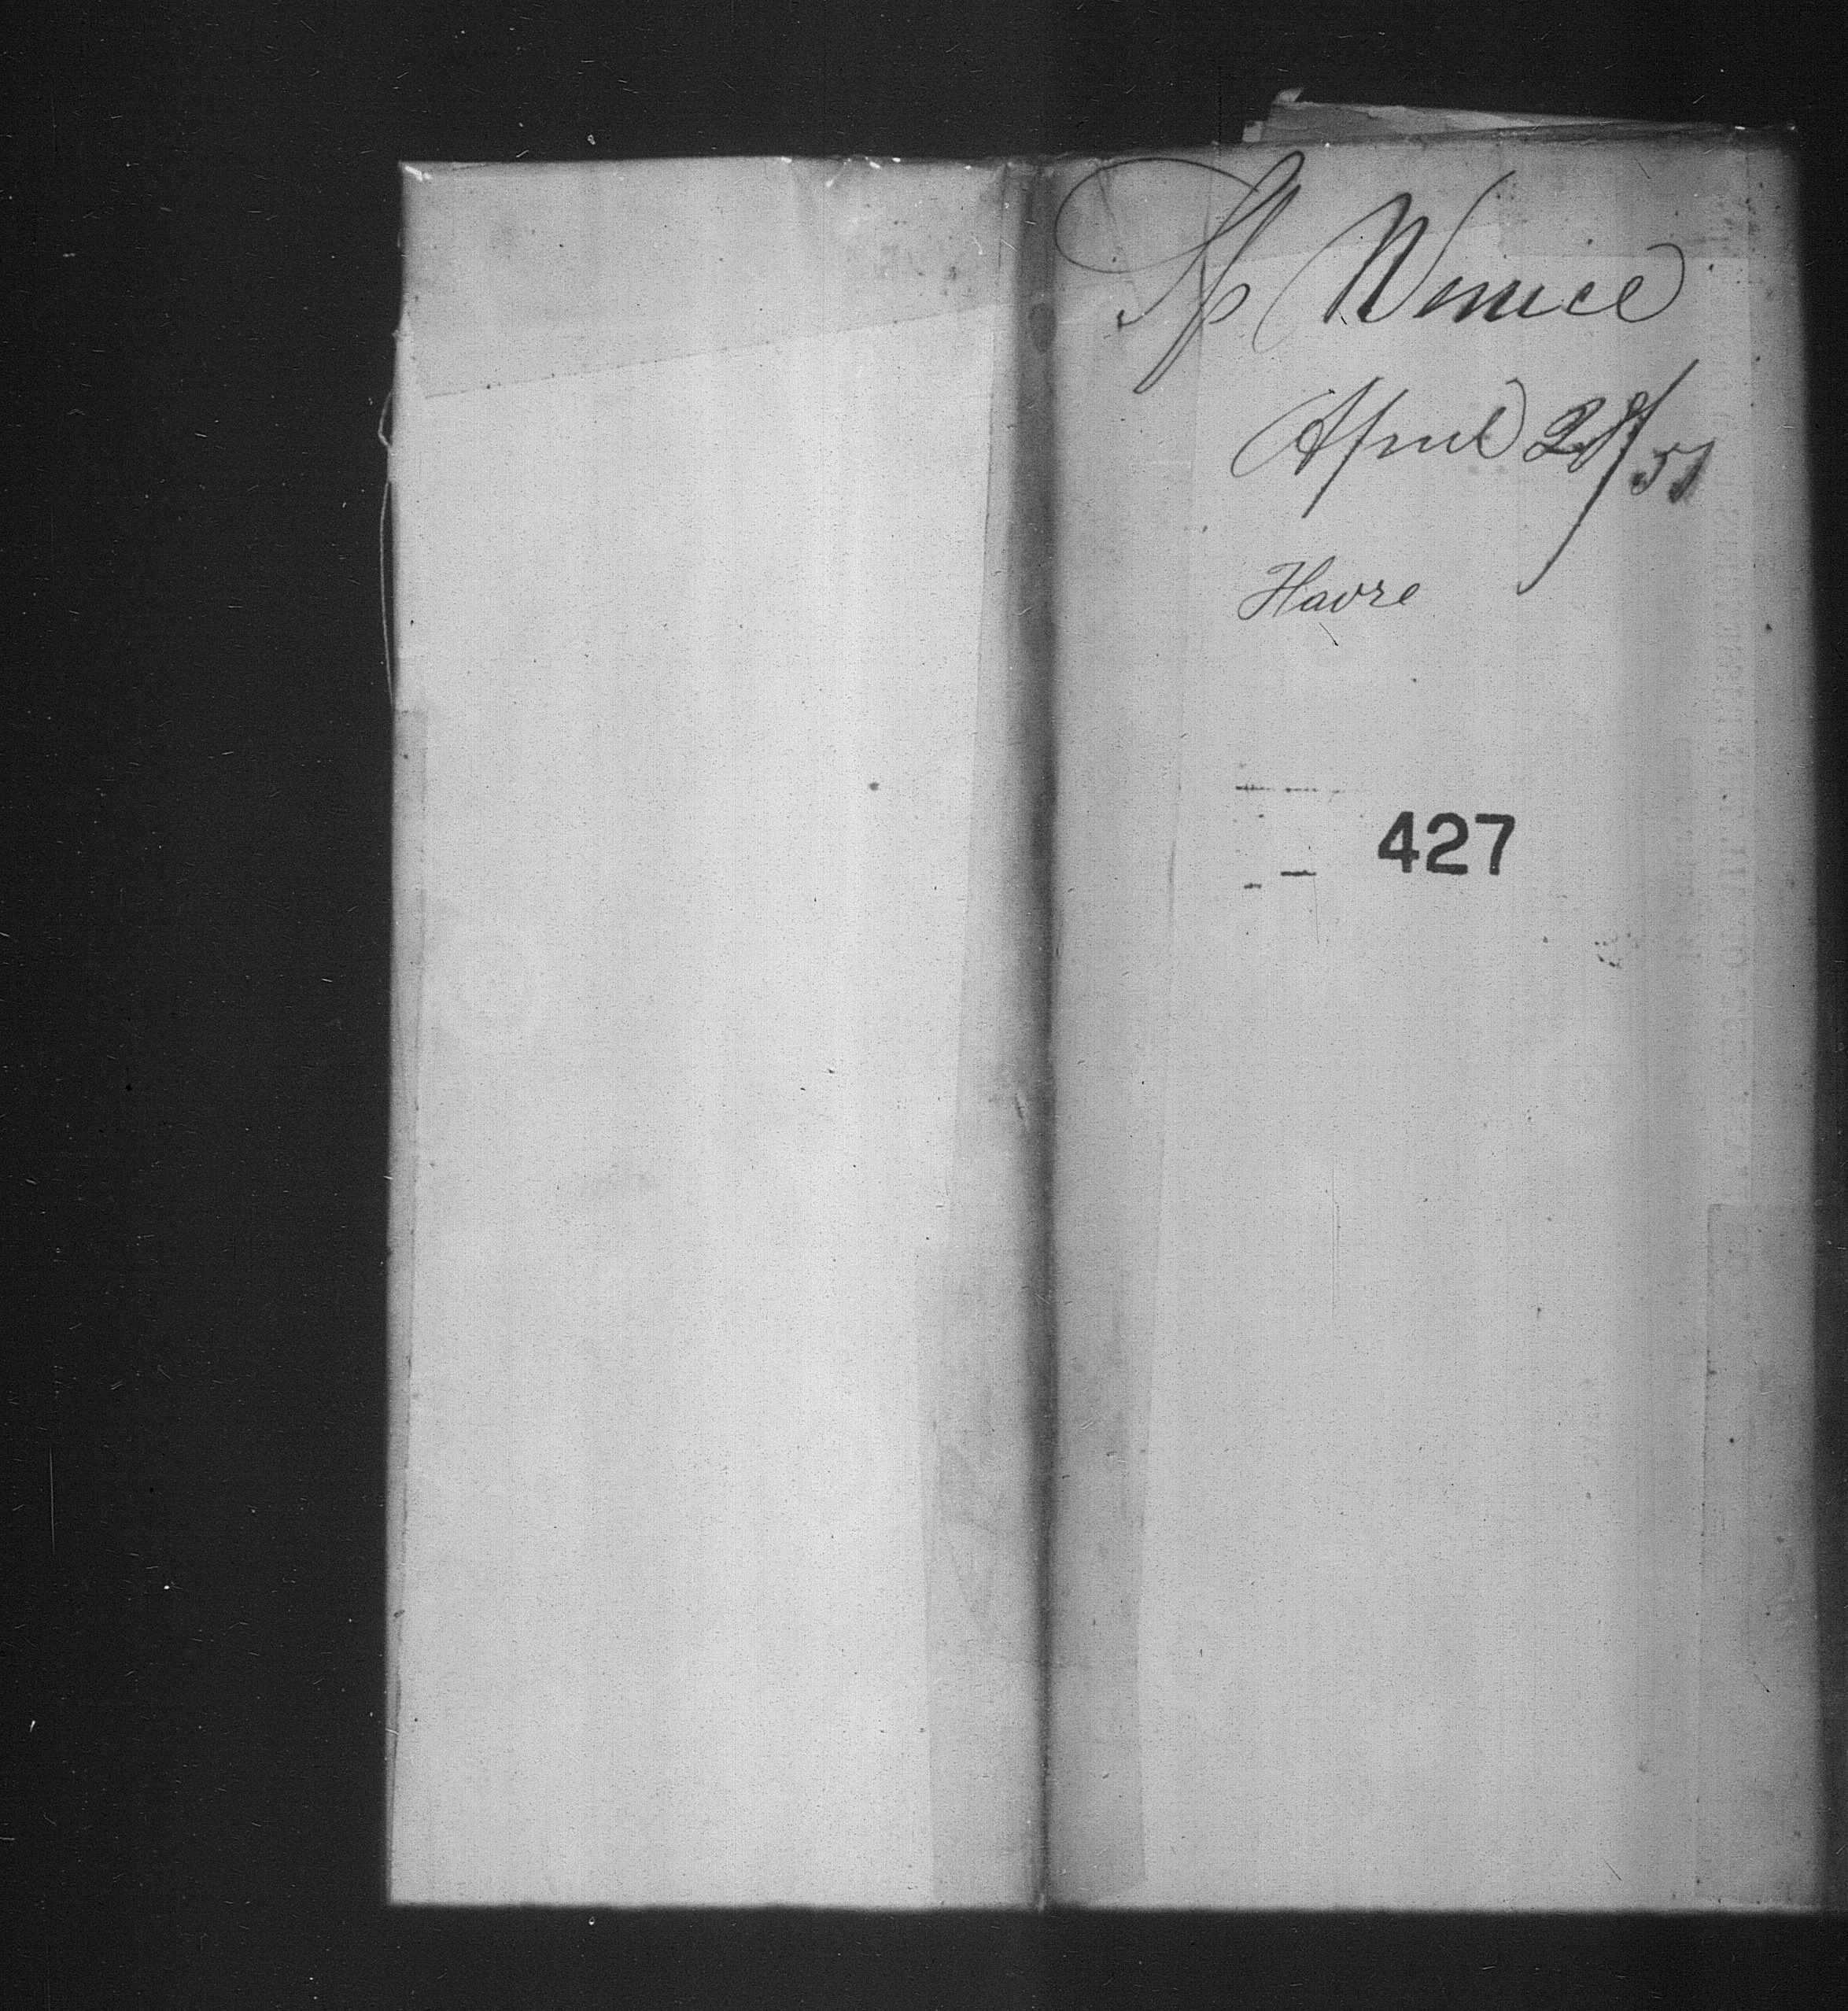 Sp Venice
April 28/51
Havre
427